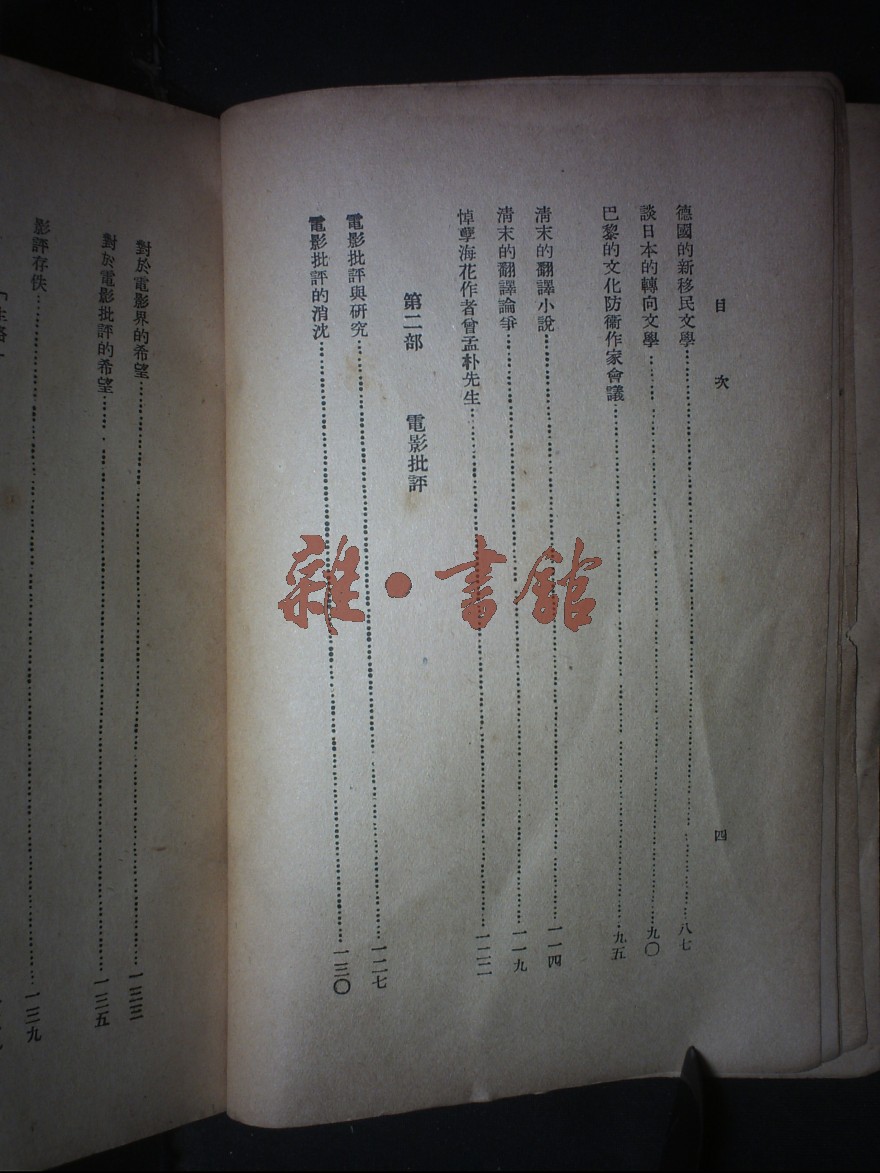 目次 四
德國的新移民文學……八七
談日本的轉向文學……九〇
巴黎的文化防衛作家會議……九五
清末的翻譯小說……一一四
清末的翻譯論爭……一一九
悼孽海花作者曾孟朴先生……一二二
第二部 電影批評
電影批評與研究……一二七
電影批評的消沈……一三〇
對於電影界的希望……一三三
對於電影批評的希望……一三五
影評存佚……一三九
雜·書館